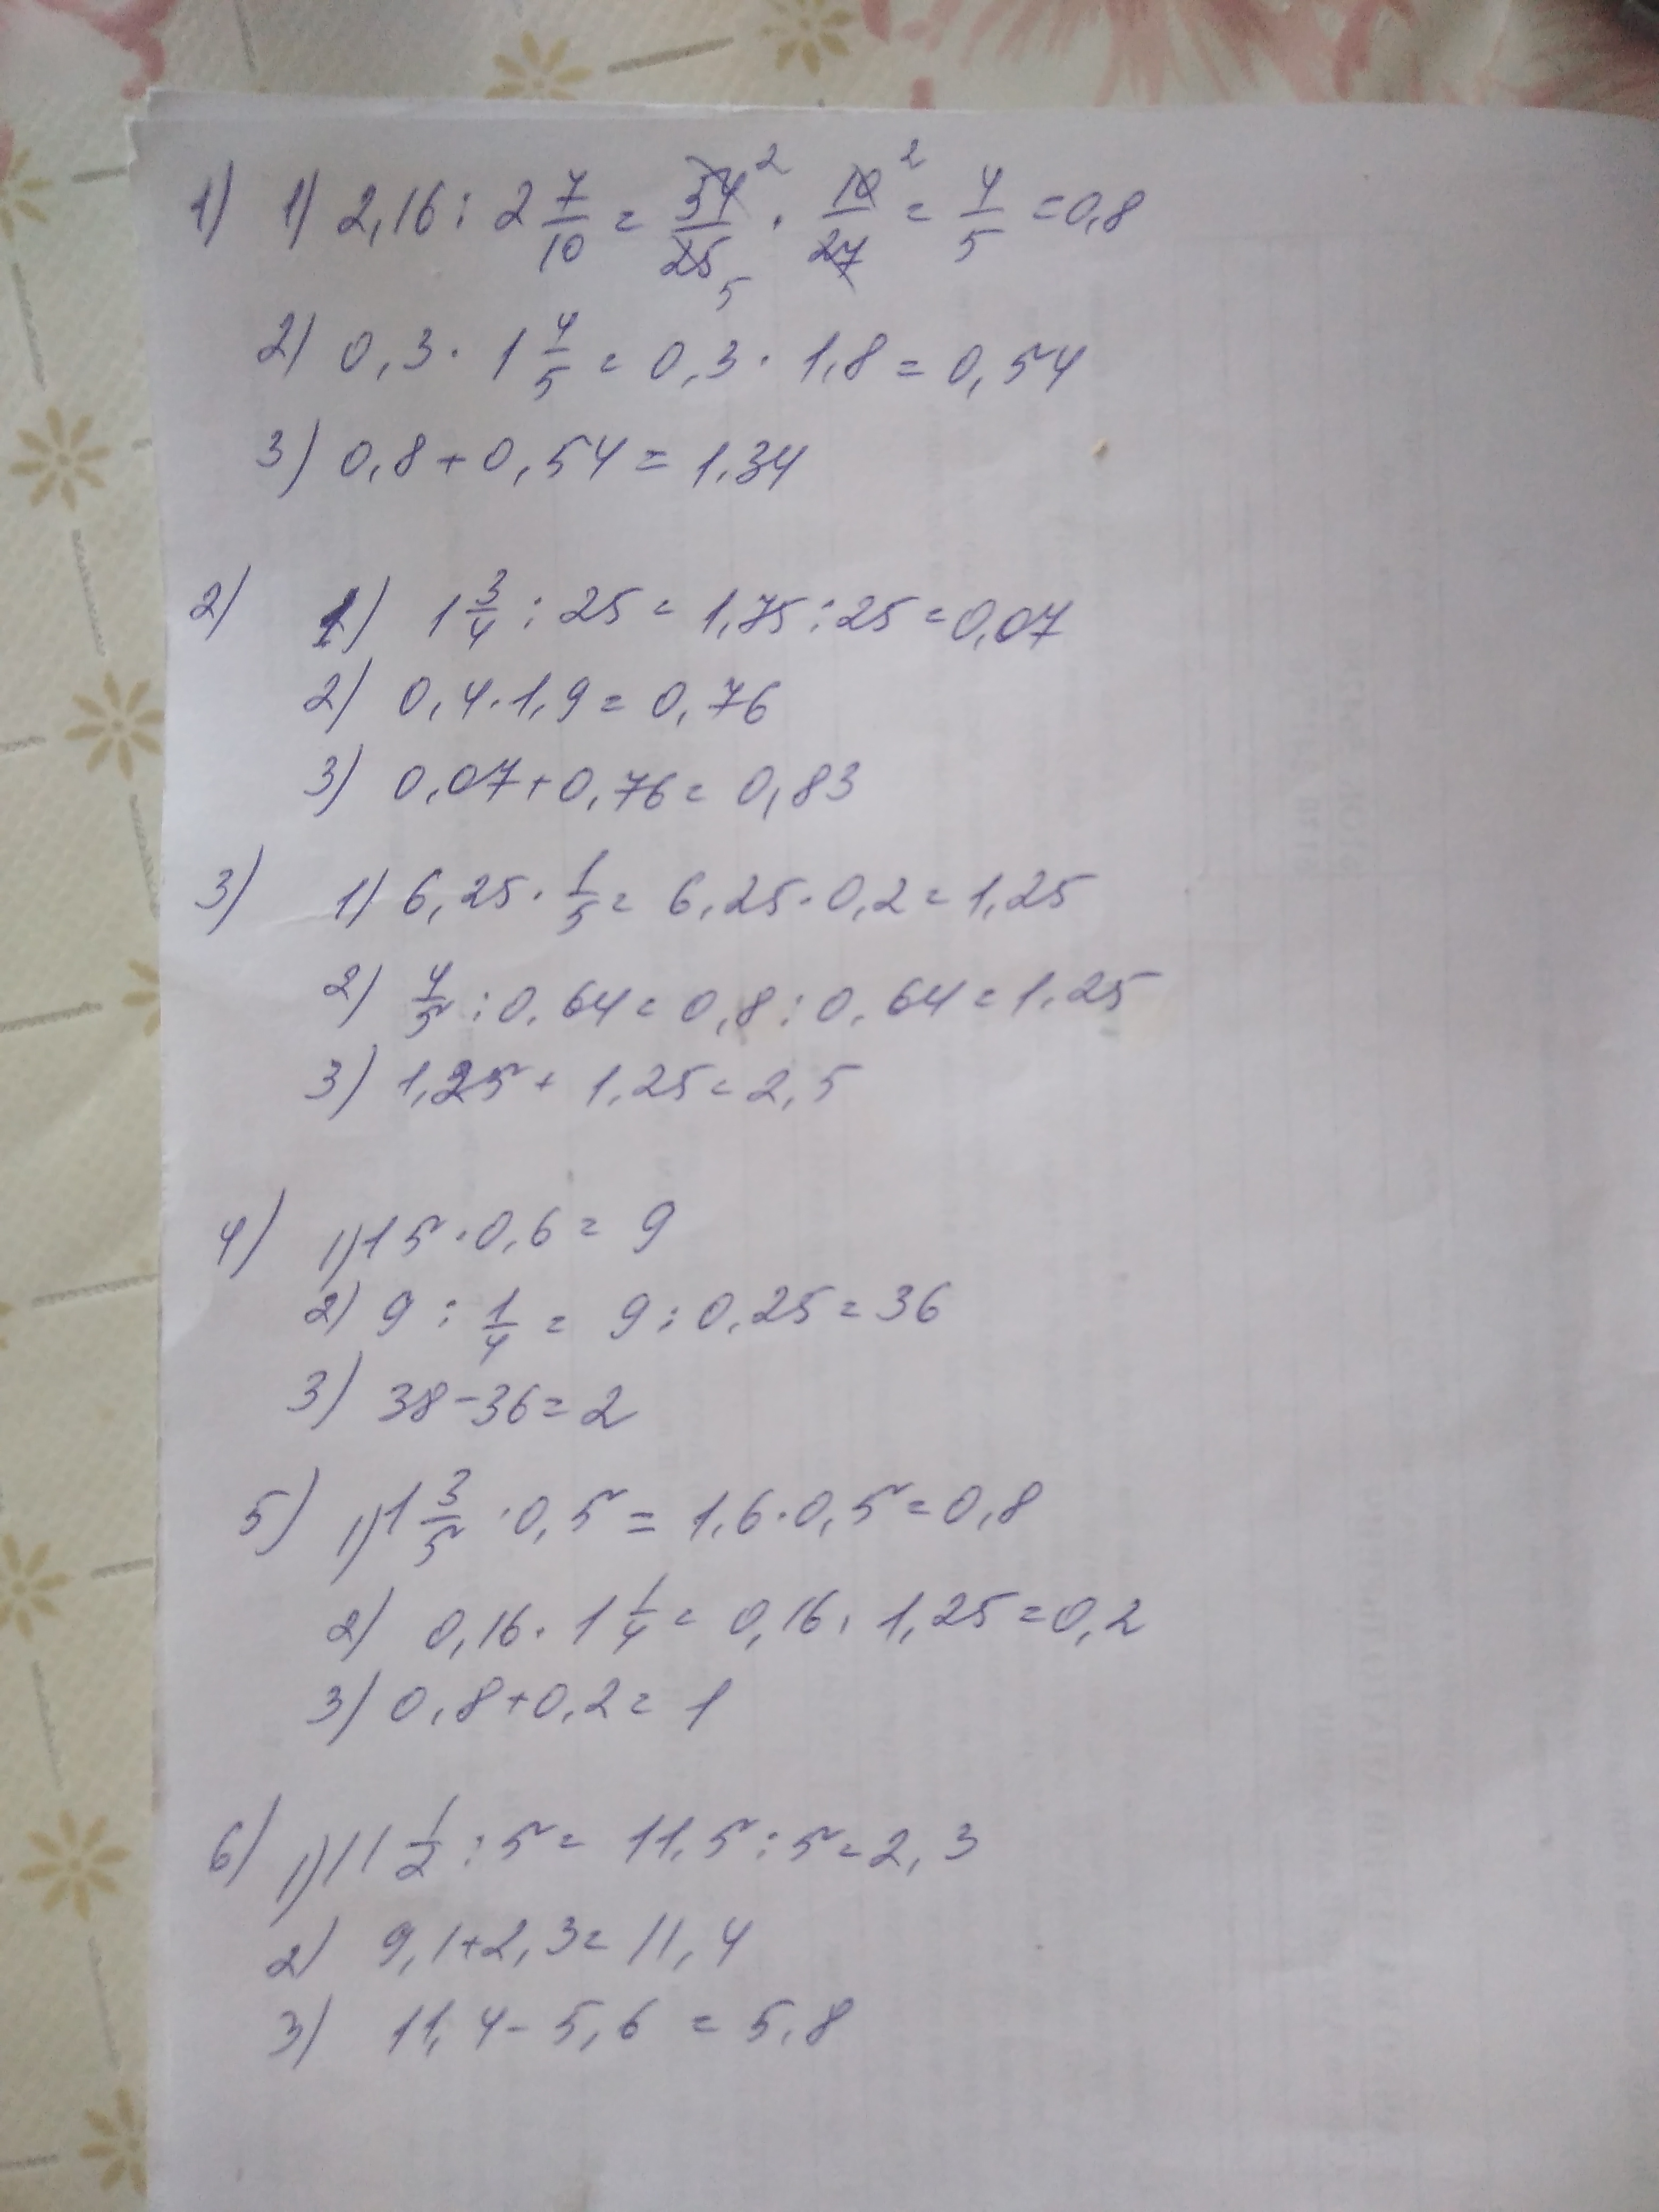 1) 1) 2,16 : 2 7/10 = 54/25 · 10/27 = 4/5 = 0,8
2) 0,3 · 1 4/5 = 0,3 · 1,8 = 0,54
3) 0,8 + 0,54 = 1,34
2) 1) 1 3/4 : 25 = 1,75 : 25 = 0,07
2) 0,4 · 1,9 = 0,76
3) 0,07 + 0,76 = 0,83
3) 1) 6,25 · 1/5 = 6,25 · 0,2 = 1,25
2) 4/5 : 0,64 = 0,8 : 0,64 = 1,25
3) 1,25 + 1,25 = 2,5
4) 1) 15 · 0,6 = 9
2) 9 : 1/4 = 9 : 0,25 = 36
3) 38 - 36 = 2
5) 1) 1 3/5 · 0,5 = 1,6 · 0,5 = 0,8
2) 0,16 · 1 1/4 = 0,16 · 1,25 = 0,2
3) 0,8 + 0,2 = 1
6) 1) 11 1/2 : 5 = 11,5 : 5 = 2,3
2) 9,1 + 2,3 = 11,4
3) 11,4 - 5,6 = 5,8